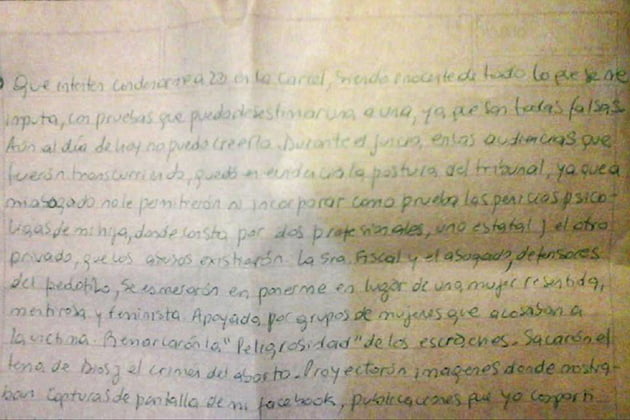 Que intenten condenarme a 23 en la Carcel, siendo inocente de todo lo que se me
imputa, con pruebas que puedo desestimar una a una, ya que son todas falsas
Aún al día de hoy no puedo creerlo. Durante el juicio, en las audiencias que
fuerón transcurriendo, quedó en evidencia la postura del tribunal, ya que a
mi abogado no le permitierón ni incorporar como prueba las pericias psico-
lógicas de mi hija, donde consta por dos profesionales, uno estatal y el otro
privado, que los abusos existierón. La Sra. Fiscal y el abogado, defensores
del pedófilo, se esmerarón en ponerme en lugar de una mujer resentida,
mentirosa y feminista. Apoyada por grupos de mujeres que acosaban a
la victima. Remarcarón la "Peligrosidad" de los escraches. Sacarón el
tema de Dios y el crimen del aborto. Proyectarón imagenes donde mostra-
ban capturas de pantalla de mi facebook, publicaciones que yo compartí...